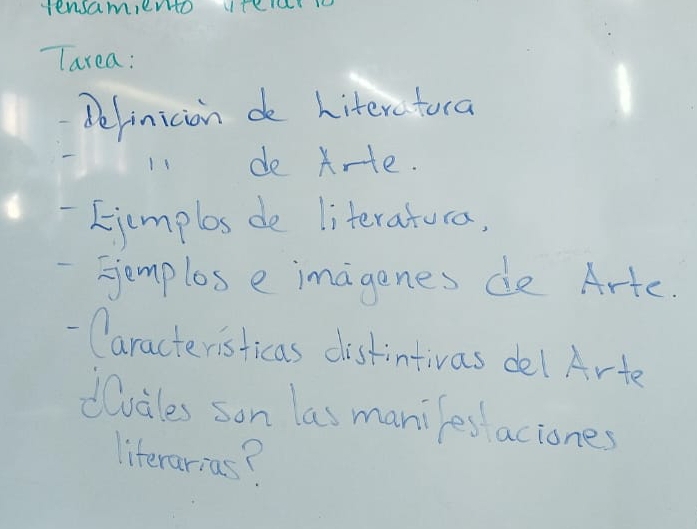 Pensamiento literario
Tarea:
- Definición de Literatura
- " de Arte.
- Ejemplos de literatura,
- Ejemplos e imágenes de Arte.
- Características distintivas del Arte
¿Cuáles son las manifestaciones
literarias?